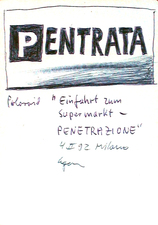 PENTRATA
Polaroid "Einfahrt zum
Supermarkt –
PENETRAZIONE"
4 II 92 Milano